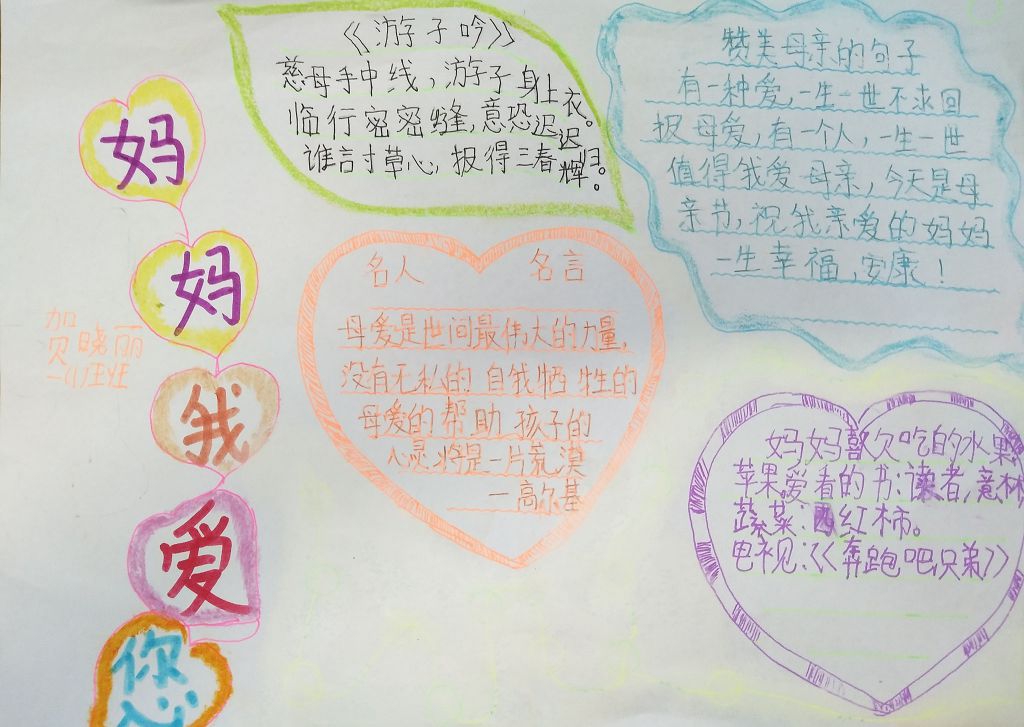 妈
妈
我
爱
你
晓丽
《游子吟》
慈母手中线，游子身上衣。
临行密密缝，意恐迟迟归。
谁言寸草心，报得三春辉。
赞美母亲的句子
有一种爱，一生一世不求回
报母爱，有一个人，一生一世
值得我爱母亲，今天是母
亲节，祝我亲爱的妈妈
一生幸福，安康！
名人 名言
母爱是世间最伟大的力量，
没有无私的自我牺牲的
母爱的帮助孩子的
心灵将是一片荒漠
—高尔基
妈妈喜欢吃的水果
苹果，爱看的书：读者，意林
蔬菜：西红柿。
电视：《奔跑吧，兄弟》